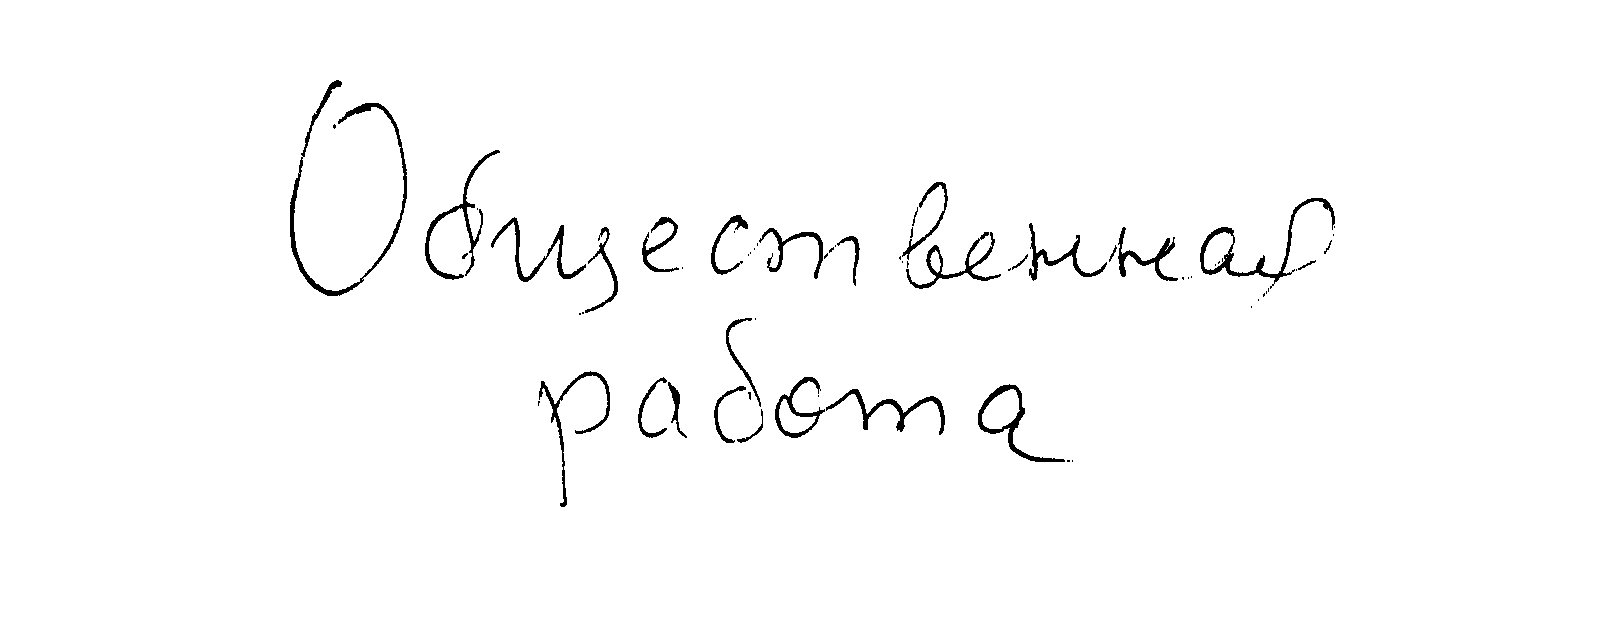 Общественная
работа